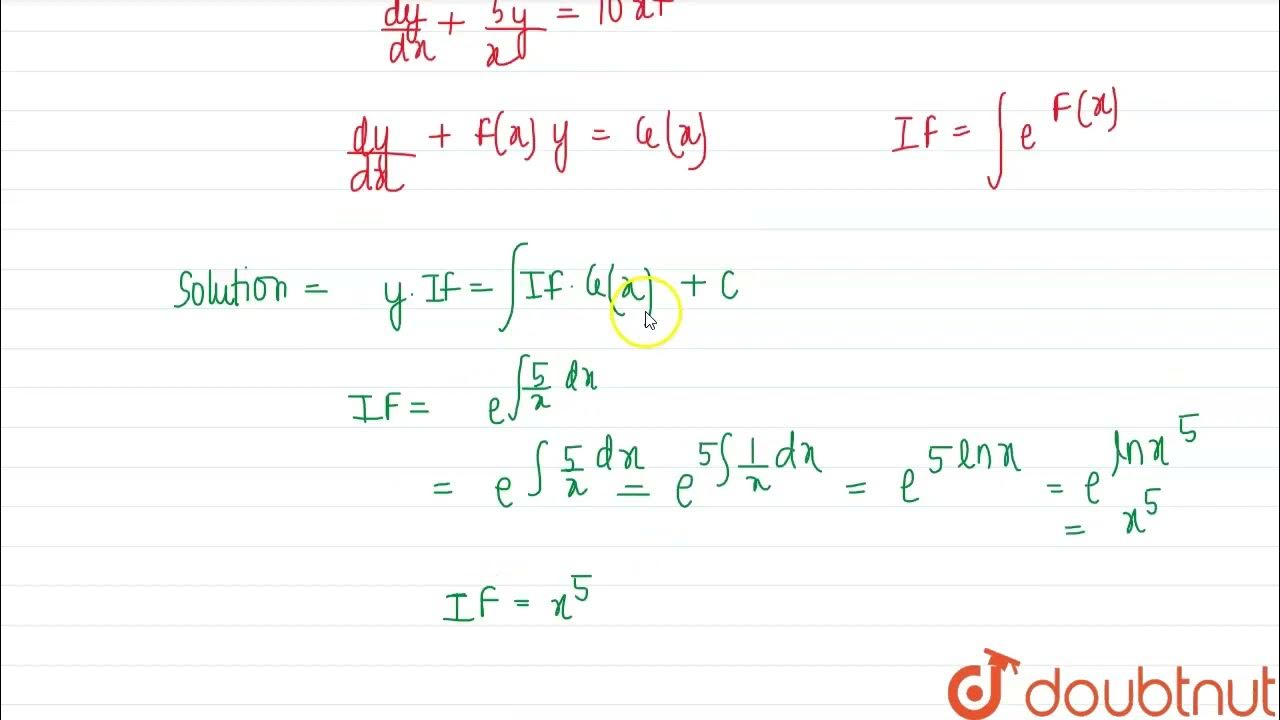 dy/dx + 5y/x = 10x
dy/dx + F(x) y = G(x)
IF = ∫ e^F(x)
Solution = y. IF = ∫ IF. G(x) + C
IF = e^∫ 5/x dx
= e^∫ 5/x dx = e^5∫ 1/x dx = e^5 ln x = e^ln x^5
= x^5
IF = x^5
doubtnut